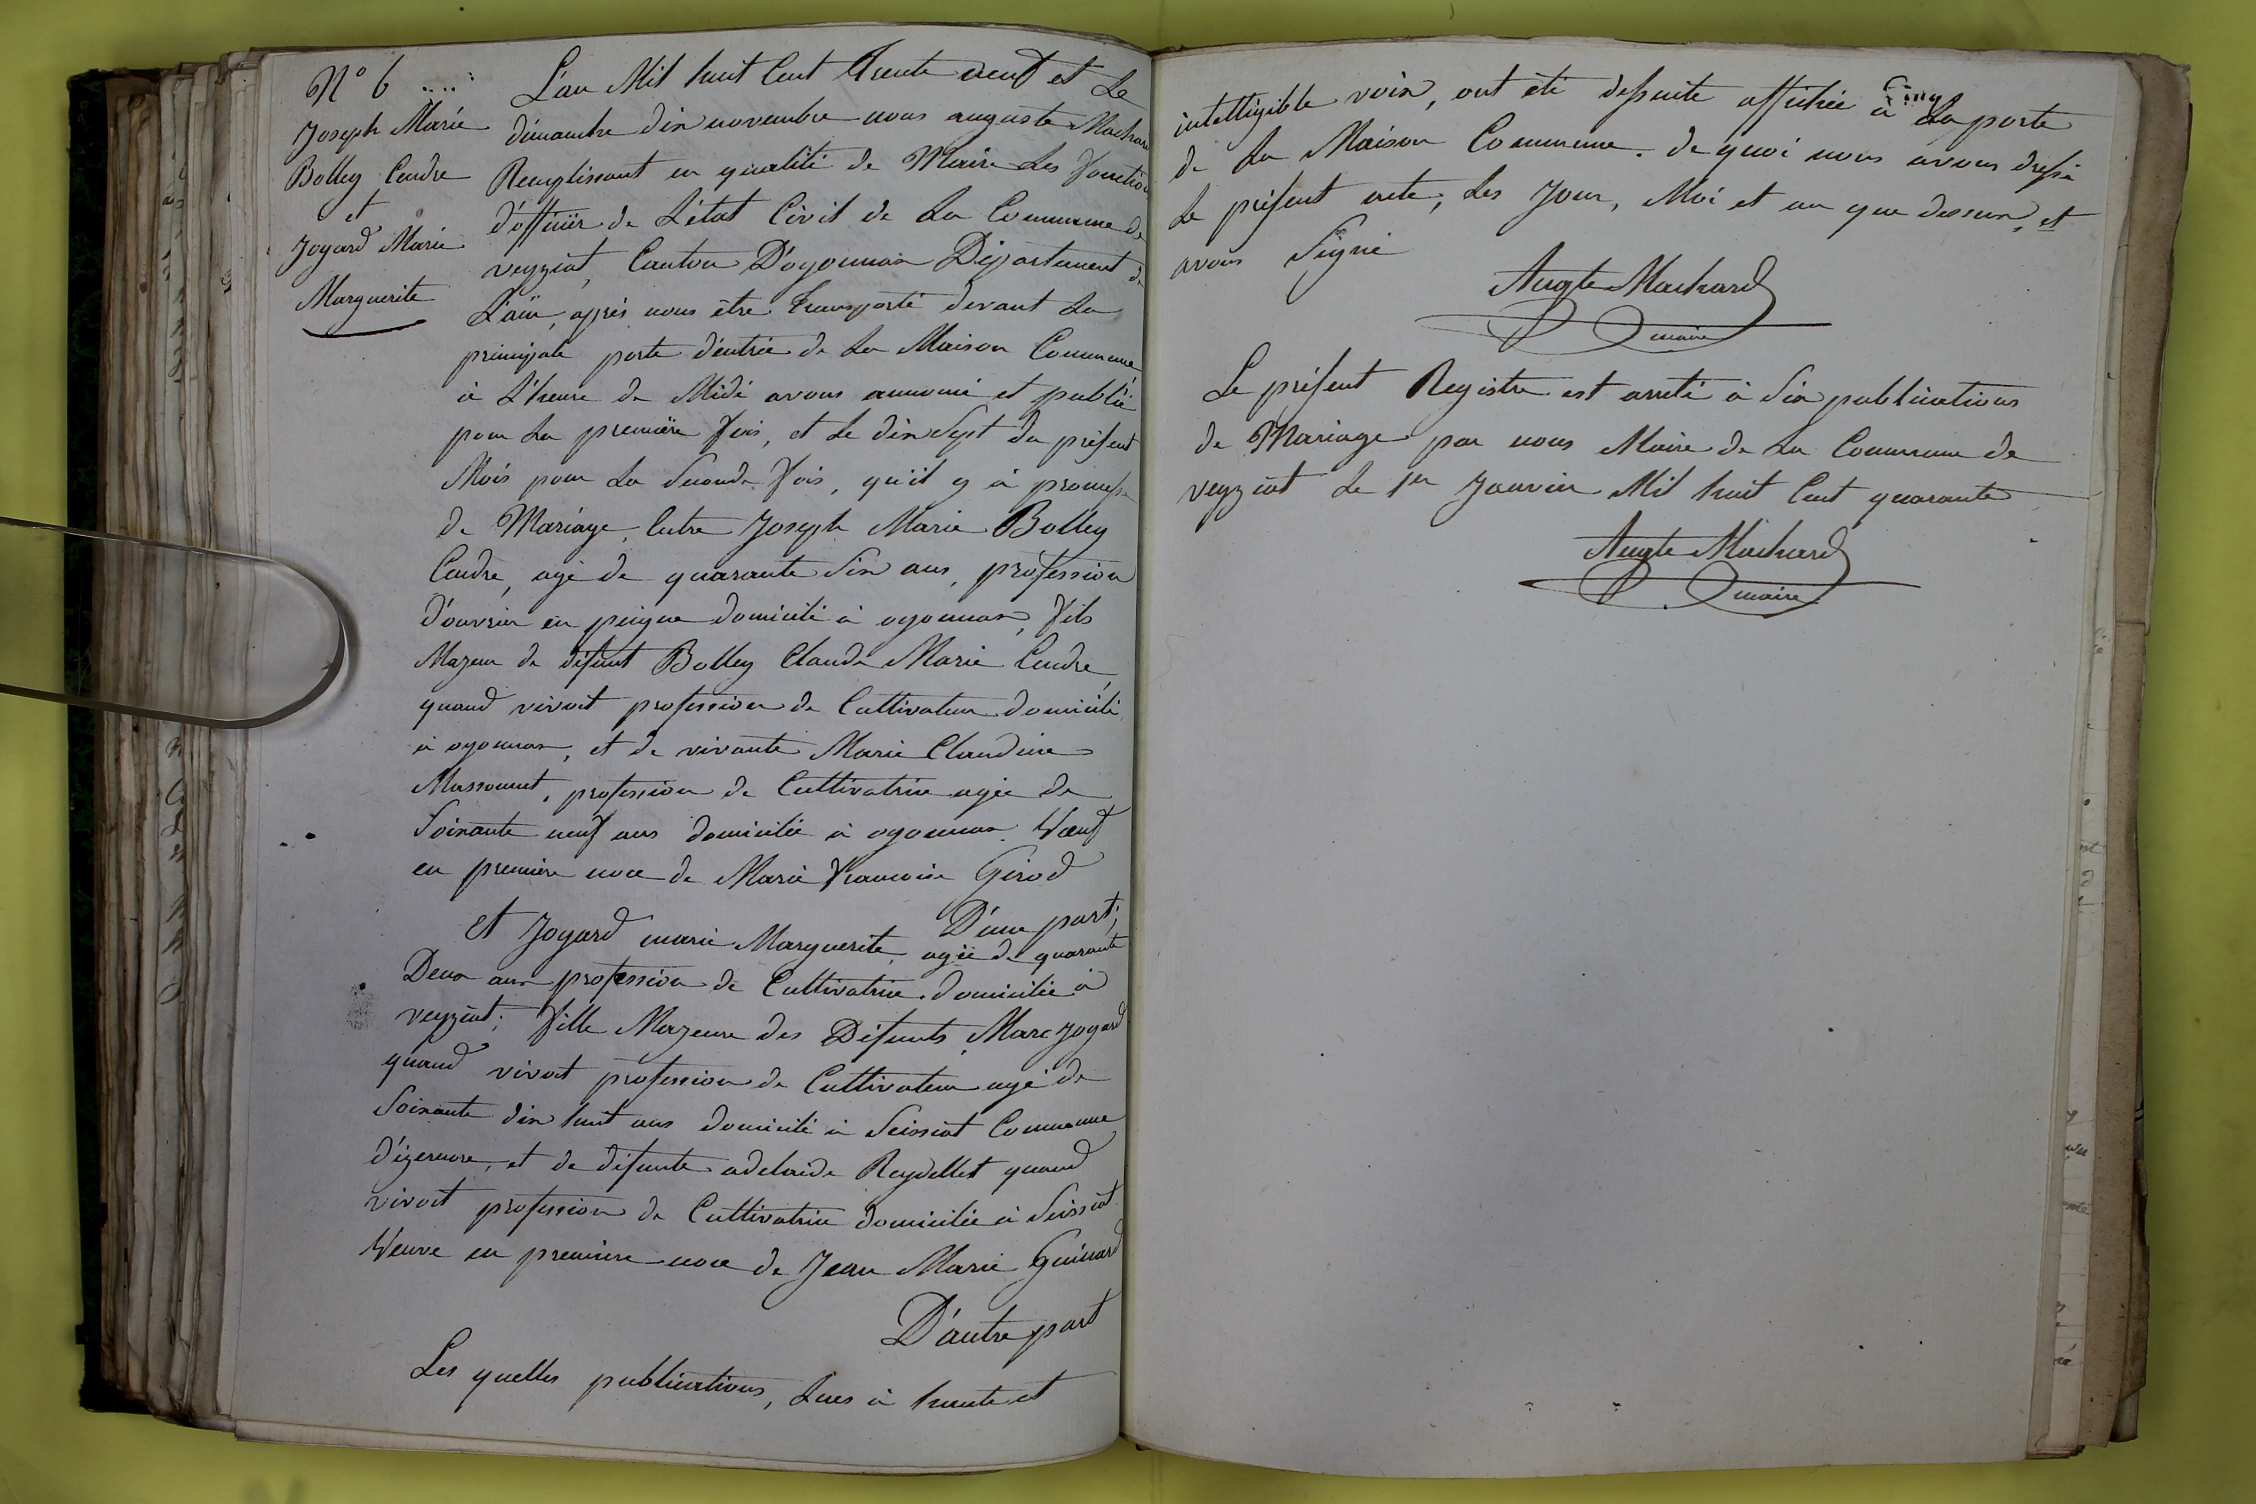 N° 6
Joseph Marie
Bolley Cendre
et
Joyard Marie
Marguerite
L'an Mil huit Cent Trente neuf et Le
dimanche dix novembre nous auguste Machard
Remplissant en qualité de Maire Les Fonction
d'officier de L'état Civil de La Commune de
veyziat, Canton D'oyonnax Département de
L'ain, après nous être transporté devant La
principale porte d'entrée de La Maison Commune
à L'heure de Midi avons annoncé et publié
pour La première Fois, et Le dix Sept du présent
Mois pour La Seconde Fois, qu'il y à promesse
de Mariage, Entre Joseph Marie Bolley
Cendre, agé de quarante Six ans, profession
d'ouvrier en peigne domicilié à oyonnax, Fils
Majeur de défunt Bolley Claude Marie Cendre,
quand vivoit profession de Cultivateur domicilié
à oyonnax, et de vivante Marie Claudine
Massonnet, profession de Cultivatrice agée de
Soixante neuf ans domiciliée à oyonnax. Vœuf
en première noce de Marie Francoise Girod
D'une part;
et Joyard marie Marguerite, agée de quarante
Deux ans profession de Cultivatrice. domiciliée à
veyziat; Fille Majeure des Défunts, Marc Joyard
quand vivoit profession de Cultivateur agé de
Soixante dix huit ans domicilié à Seissiat Commune
d'izernore, et de défunte adelaide Reydellet quand
vivoit profession de Cultivatrice domiciliée à Seissiat
Veuve en première noce de Jean Marie Guinard
D'autre part
Les quelles publications, Lues à haute et
intelligible voix, ont été dessuite affichée à La porte
de La Maison Commune. de quoi nous avons dressé
Le présent acte, Les Jour, Moi et an que dessus, et
avons Signé
Augte Machard
maire
Le présent Registre est arreté à Six publications
de Mariage par nous Maire de La Commune de
veyziat Le 1er Janvier Mil huit Cent quarante
Augte Machard
maire